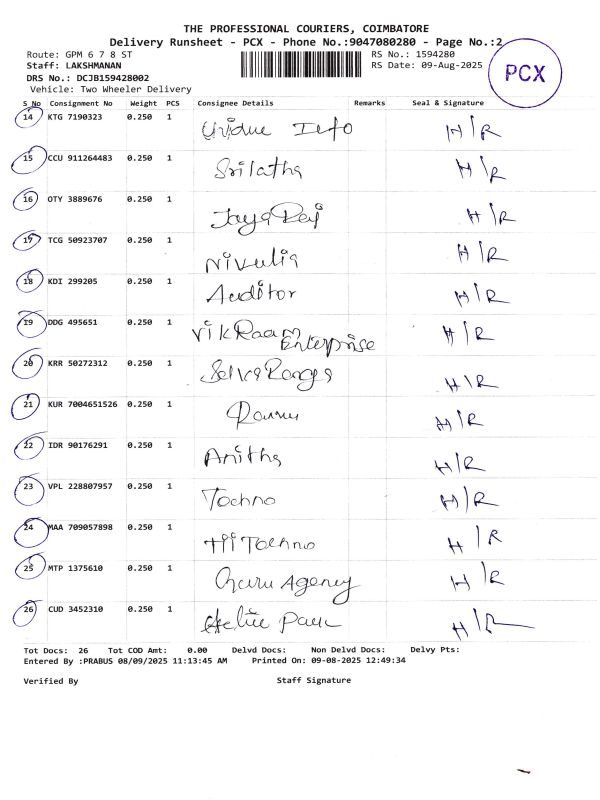 THE PROFESSIONAL COURIERS, COIMBATORE
Delivery Runsheet - PCX - Phone No.:9047080280 - Page No.:2
Route: GPM 6 7 8 ST RS No.: 1594280
Staff: LAKSHMANAN RS Date: 09-Aug-2025
PCX
DRS No.: DCJB159428002
Vehicle: Two Wheeler Delivery
S No Consignment No Weight PCS Consignee Details Remarks Seal & Signature
14 KTG 7190323 0.250 1 Unique Info H/R
15 CCU 911264483 0.250 1 Srilatha H/R
16 OTY 3889676 0.250 1 Jaya Raj H/R
17 TCG 50923707 0.250 1 Nivulia H/R
18 KDI 299205 0.250 1 Auditor H/R
19 DDG 495651 0.250 1 VikRaam Enterprise H/R
20 KRR 50272312 0.250 1 H/R
21 KUR 7004651526 0.250 1 H/R
22 IDR 90176291 0.250 1 Anitha H/R
23 VPL 228807957 0.250 1 Techno H/R
24 MAA 709057898 0.250 1 Techno H/R
25 MTP 1375610 0.250 1 Guru Agency H/R
26 CUD 3452310 0.250 1 H/R
Tot Docs: 26 Tot COD Amt: 0.00 Delvd Docs: Non Delvd Docs: Delvy Pts:
Entered By :PRABUS 08/09/2025 11:13:45 AM Printed On: 09-08-2025 12:49:34
Verified By Staff Signature